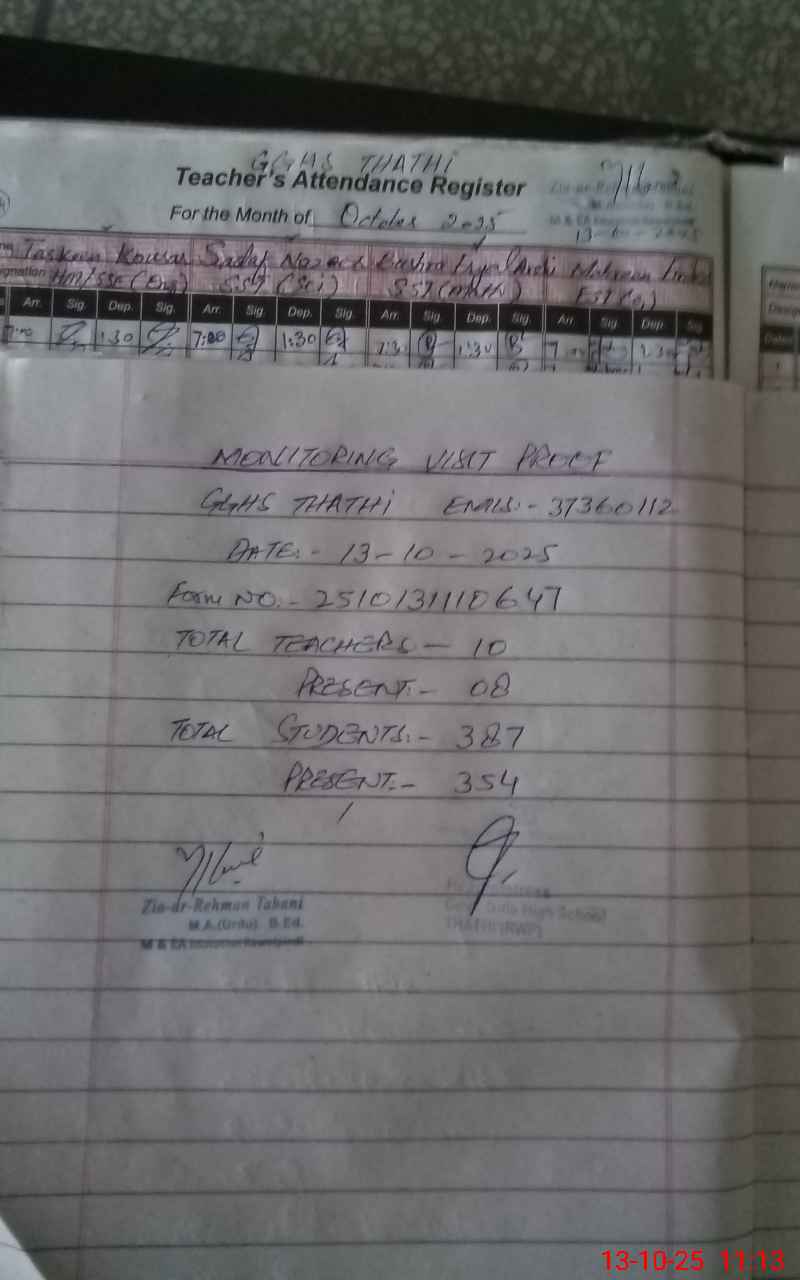 GGHS THATHI
Teacher's Attendance Register
For the Month of October 2025
13-10-2025
Taskeen Kousar Sadaf Nazeer
HM/SSE (Eng) SST (Sci) SST (Math)
Arr. Sig. Dep. Sig. Arr. Sig. Dep. Sig. Arr. Sig. Dep. Sig. Arr. Sig. Dep. Sig.
1:30 7:00 1:30 1:30
MONITORING VISIT PROOF
GGHS THATHI EMIS:- 37360112
DATE:- 13-10-2025
Form NO:- 2510131110647
TOTAL TEACHERS - 10
PRESENT:- 08
TOTAL STUDENTS:- 387
PRESENT:- 354
Zia-ur-Rehman Tabani
M.A.(Urdu) B.Ed.
M & EA
Headmistress
Govt. Girls High School
THATHI (RWP)
13-10-25 11:13